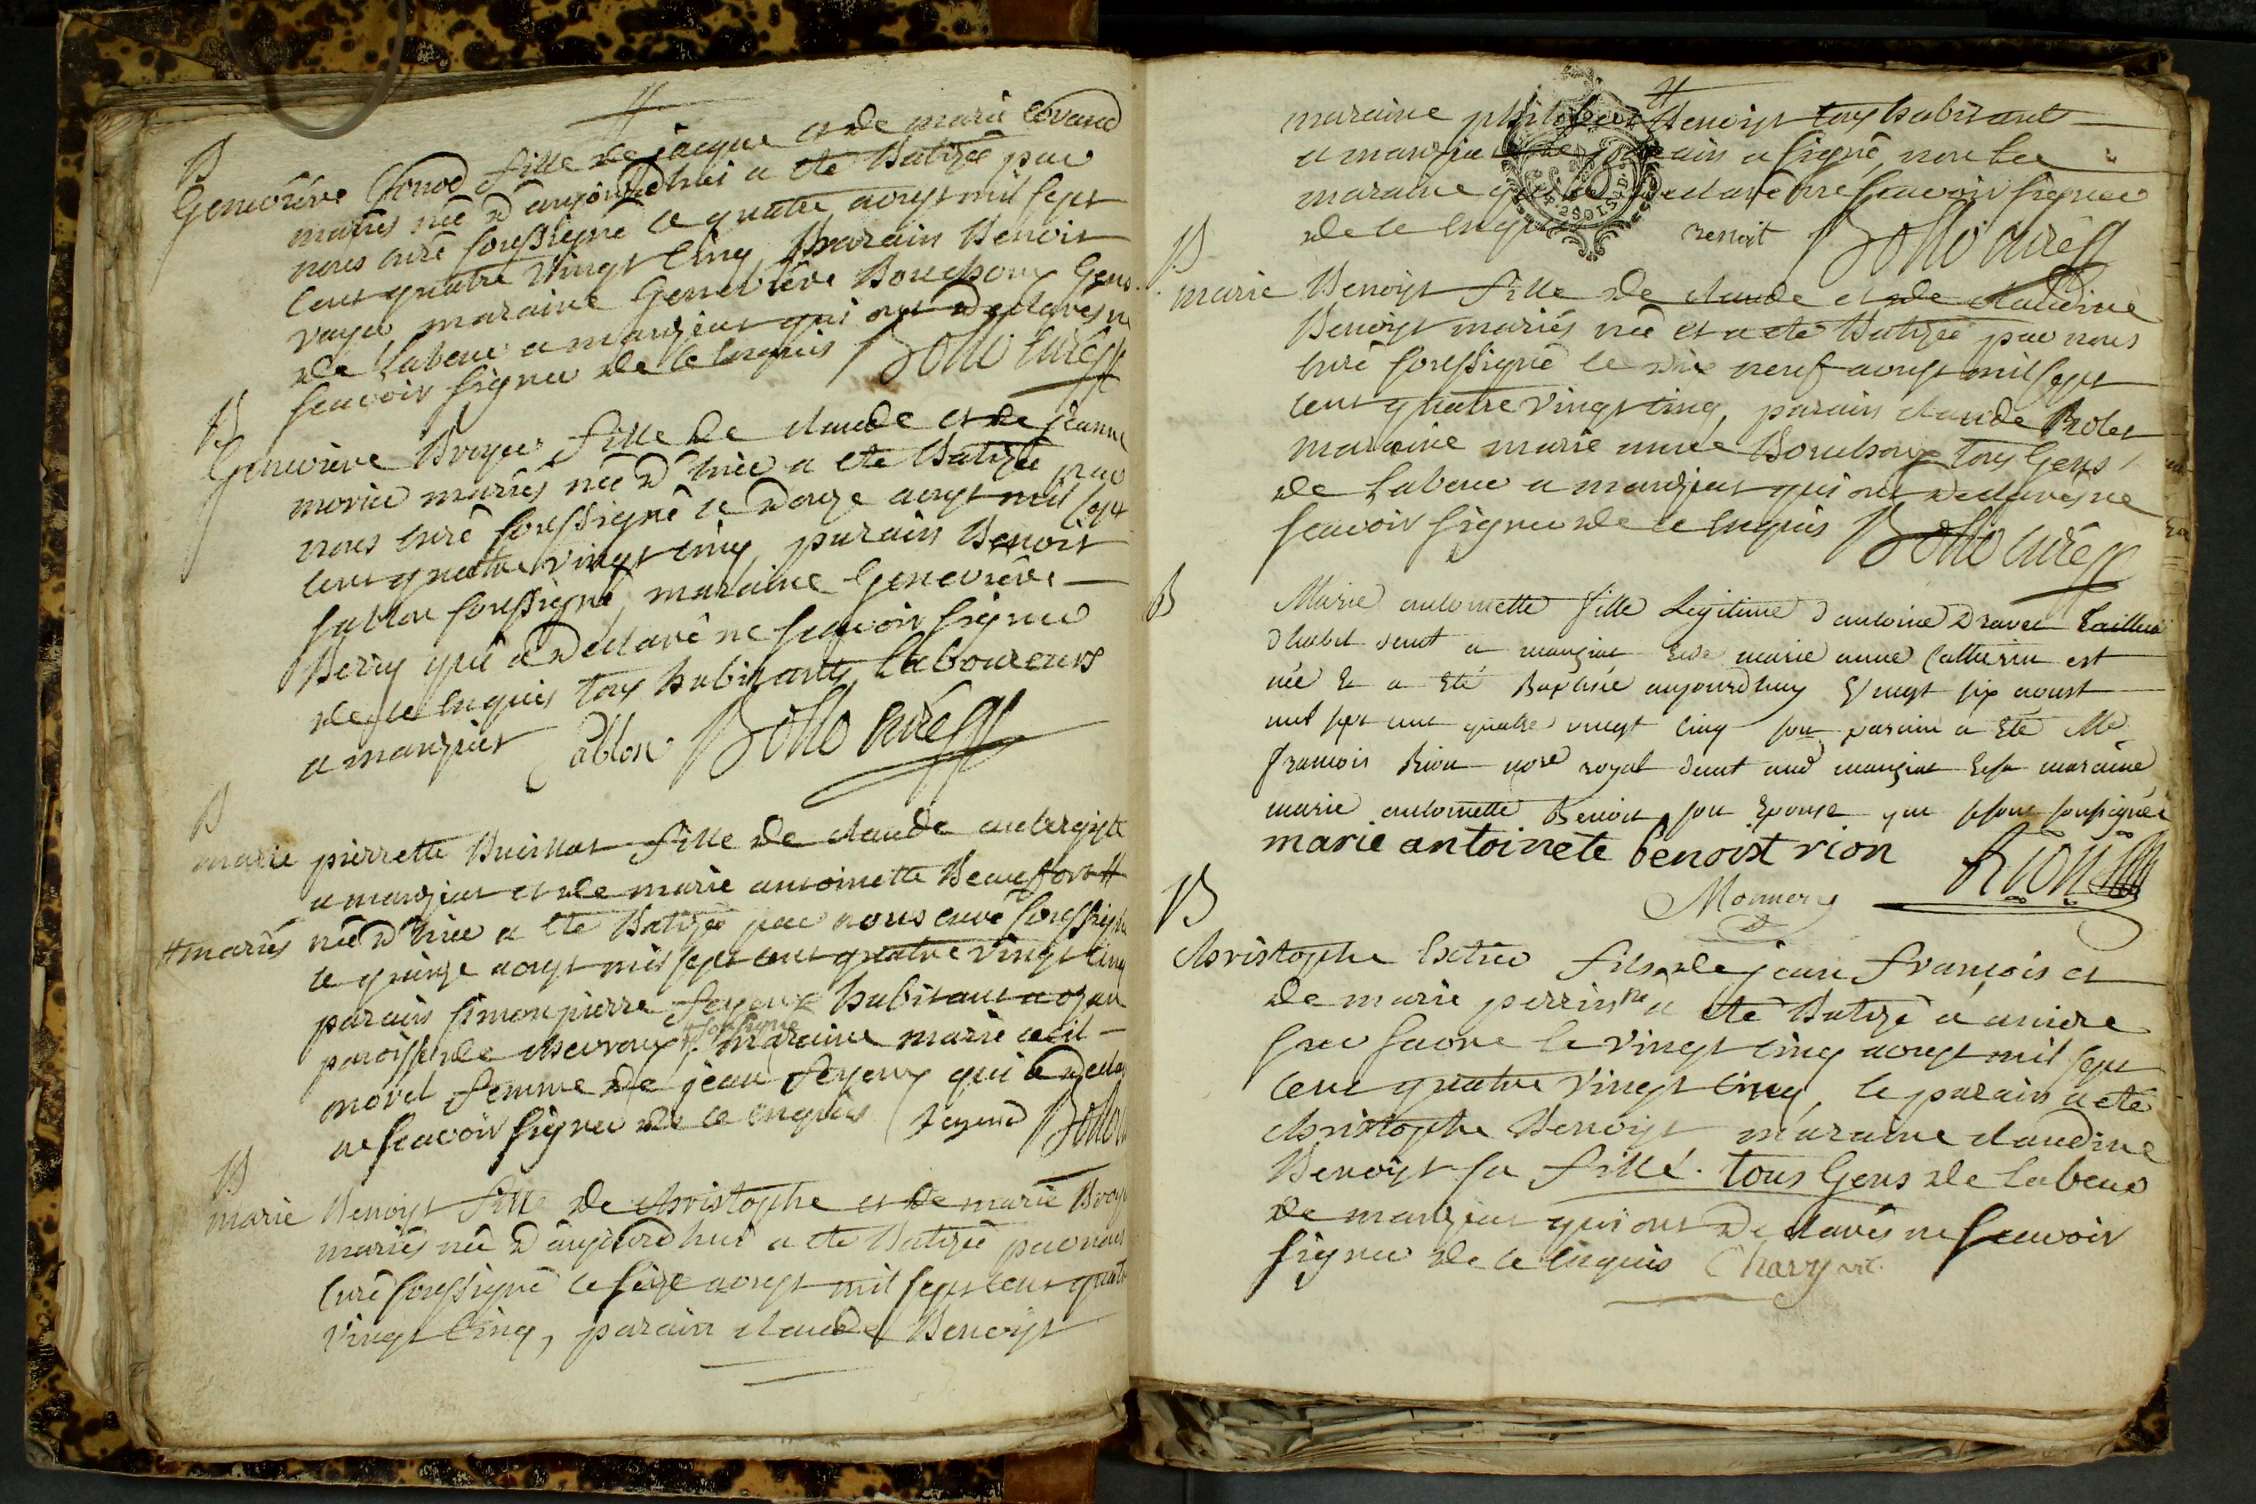 B
Genevieve Gonod fille de jacque et de marie
mariés née d'aujourd'hui a été batizée par
nous curé soussigné le quatre aoust mil sept
cent quatre vingt cinq parain Benoit
voyer maraine Genevieve Bouchoux Gens
de labeur a manziat qui ont declarés ne
scavoir signer de ce enquis Bollo curé
B
Genevieve Broyer fille de claude et de jeanne
morier mariés née d'hier a été batizée par
nous curé soussigné le douze aoust mil sept
cent quatre vingt cinq, parain Benoit
sablon soussigné, maraine Genevieve
Berry qui a declaré ne scavoir signer
de ce enquis tous habitants laboureurs
a manziat Sablon Bollo curé
B
marie pierrette Buirllat fille de claude aubergiste
a manziat et de marie antoinette Beaufort #
# mariés née d'hier a été batizée par nous curé soussigné
le quinze aoust mil sept cent quatre vingt cinq
parain simon pierre feyeux habitant a ozan
paroisse de chevroux # soussigné maraine marie cecil
morel femme de jean feyeux qui a declaré
ne scavoir signer de ce enquis feyeux Bollo
B
marie Benoist fille de christophe et de marie Broyer
mariés née d'aujourd'hui a été batizée par nous
curé soussigné le seize aoust mil sept cent quatre
vingt cinq, parain claude Benoist
maraine Benoist tous habitants
a manziat le parain a signé, non la
maraine qui a declaré ne scavoir signer
de ce enquis benoit Bollo curé
B
marie Benoist fille de claude et de claudine
Benoist mariés née et a été batizée par nous
curé soussigné le dix neuf aoust mil sept
cent quatre vingt cinq, parain claude Brolet
maraine marie aimée Bouchoux tous Gens
de labeur a manziat qui ont declarés ne
scavoir signer de ce enquis Bollo curé
B
Marie antoinette fille Legitime d'antoine Dravet tailleur
d'habit demt a manziat et de marie anne Catherin est
née & a été Baptisée aujourdhuy vingt six aoust
mil sept cent quatre vingt cinq son parain a été Me
francois Rion nore royal demt aud manziat et sa maraine
marie antoinette Benoist son Epouse qui se sont soussignés
marie antoinete benoist rion Rion
Monnery
B
christophe fils de jean françois et
de marie perrin né a été batizé a
le vingt cinq aoust mil sept
cent quatre vingt cinq, le parain a été
christophe Benoist maraine claudine
Benoist sa fille. tous Gens de labeur
de manziat qui ont declarés ne scavoir
signer de ce enquis